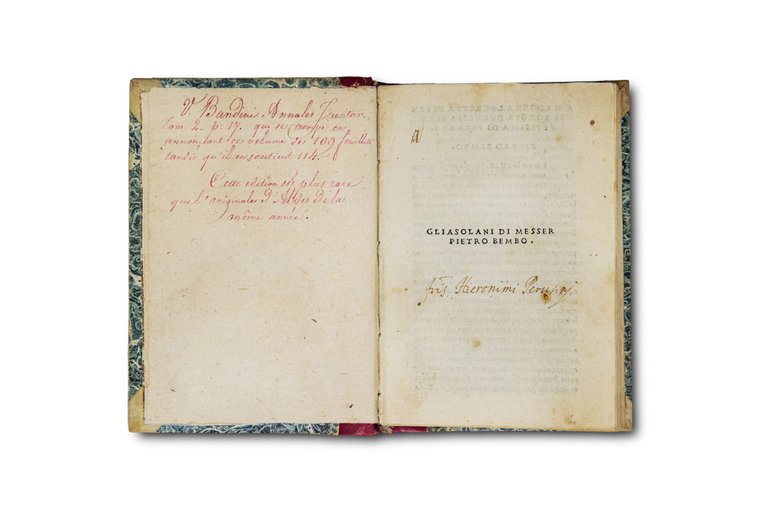 V Bandini Annales Juntar.
tom. 2. p. 17. qui se trompe en
annonçant ce volume de 109 feuillets
tandis qu'il en contient 114.
Cette edition est plus rare
que l'originale d'Alde de la
même année.
a
GLIASOLANI DI MESSER
PIETRO BEMBO.
Hieronimi